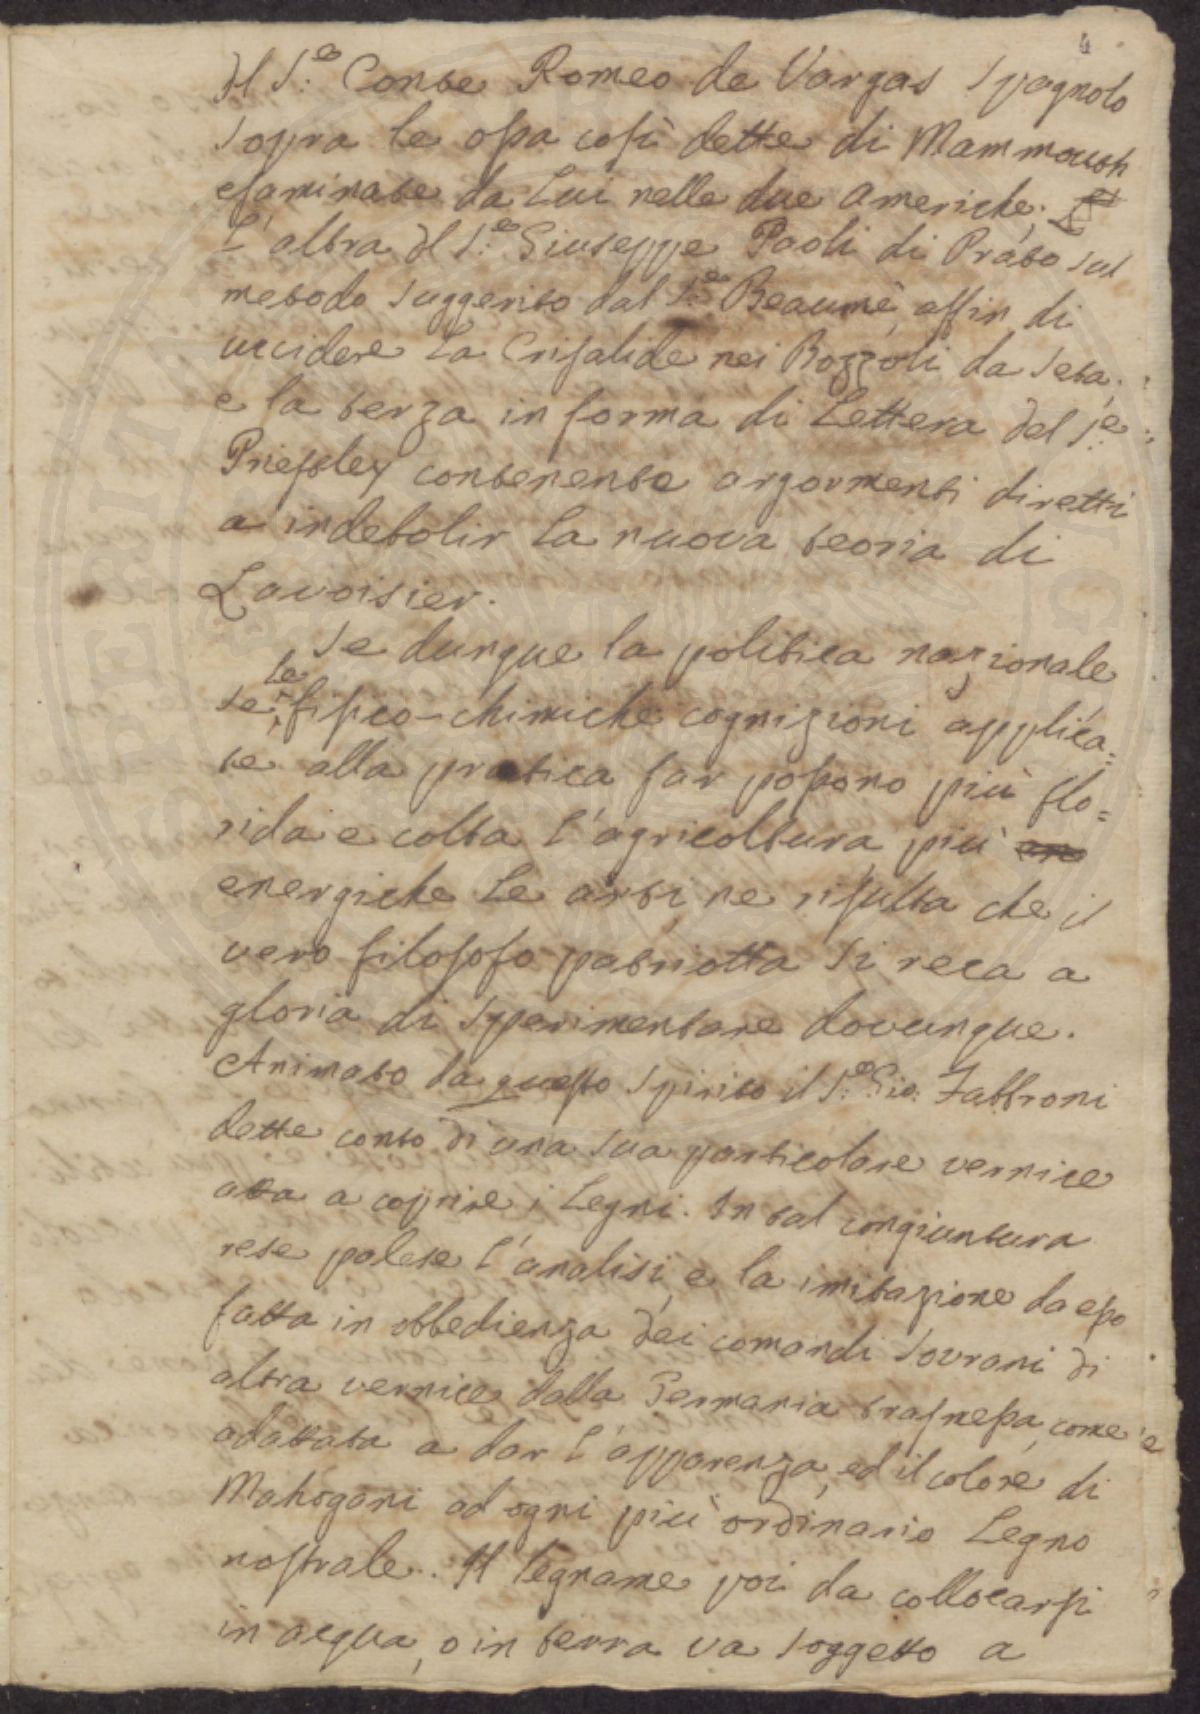 4
del S.e Conte Romeo de Vargas Spagnolo
sopra le ossa così dette di Mammouth
esaminate da Lui nelle due Americhe;
L'altra del S.e Giuseppe Paoli di Prato sul
metodo suggerito dal S.e Beaumè, affin di
uccidere la Crisalide nei Bozzoli da Seta;
e la terza in forma di Lettera del S.e
Priestley contenente argoumenti diretti
a indebolir la nuova teoria di
Lavoisier.
Se dunque la politica nazionale
se le fisico-chimiche cognizioni applica=
te alla pratica far possono più flo=
rida e colta l'agricoltura, più
energiche le arti ne risulta che il
vero filosofo patriotta si reca a
gloria di sperimentare dovunque.
Animato da questo spirito il S.e Gio: Fabbroni
dette conto di una sua particolare vernice
atta a coprire i Legni. In tal congiuntura
rese palese l'analisi, e la imitazione da esso
fatta in obbedienza dei comandi sovrani di
altra vernice dalla Germania trasmessa, come è
adattata a dar l'apparenza, ed il colore di
Mahogani ad ogni più ordinario Legno
nostrale. Il legname poi da collocarsi
in acqua, o in terra va soggetto a